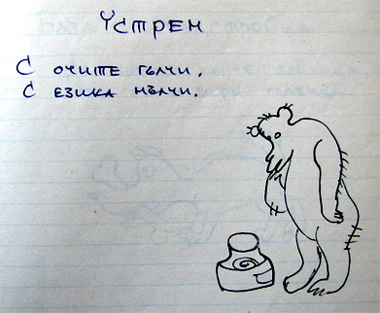 Устрем
С очите гълчи,
С езика мълчи.